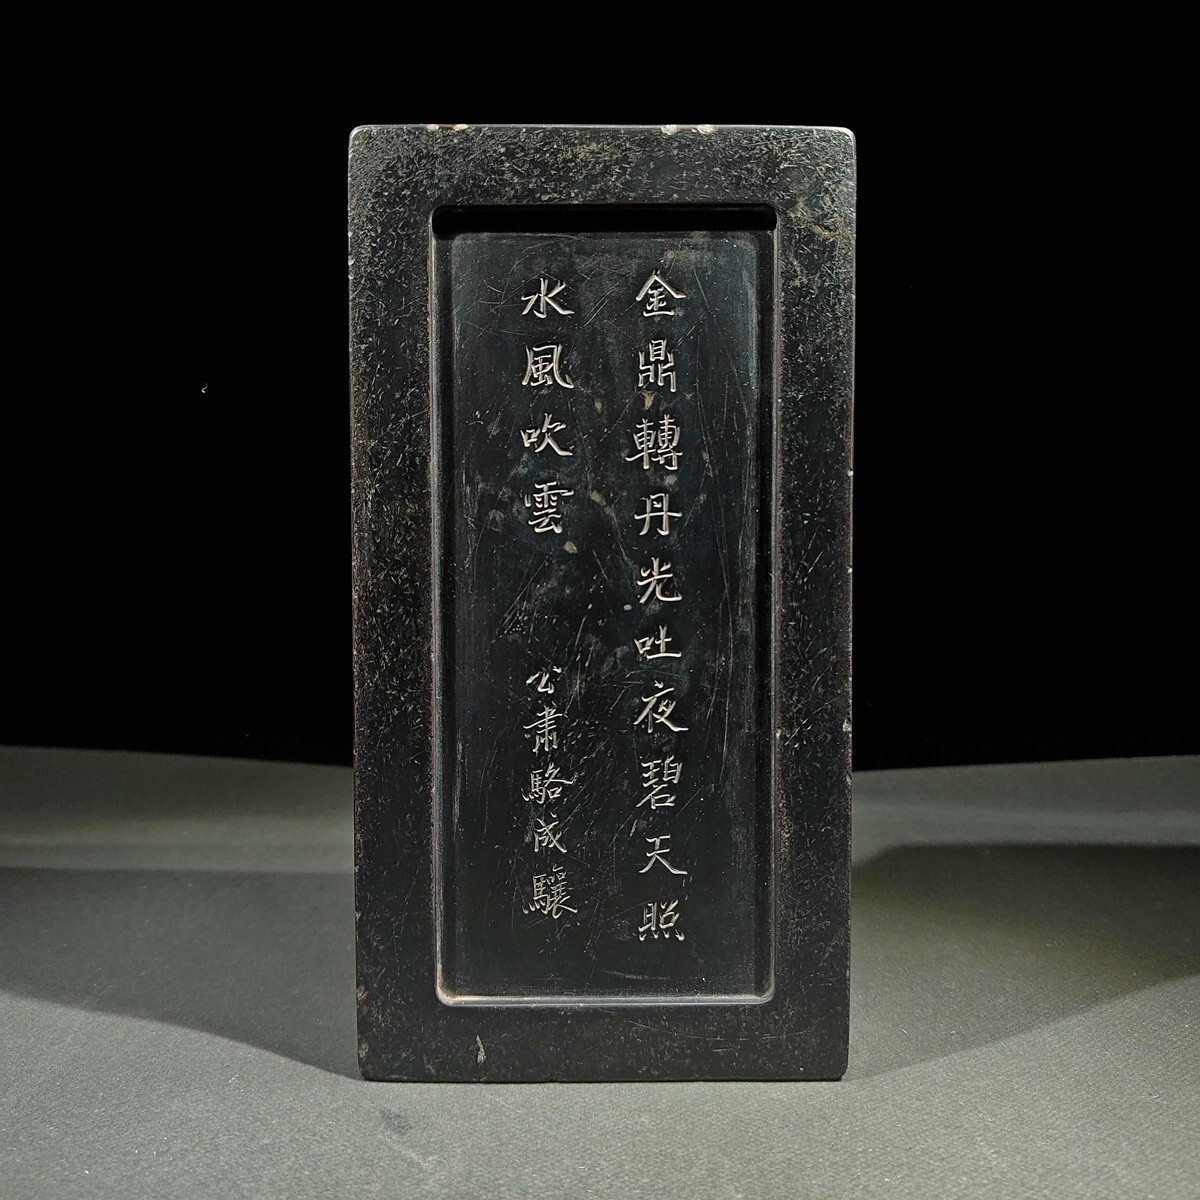 金鼎轉丹光吐夜碧天照
水風吹雲
公肅駱成驤